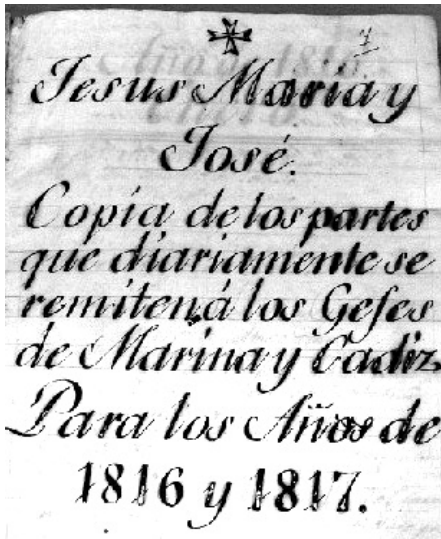 Jesus Maria y
José.
Copia de los partes
que diariamente se
remiten á los Gefes
de Marina y Cadiz
Para los Años de
1816 y 1817.